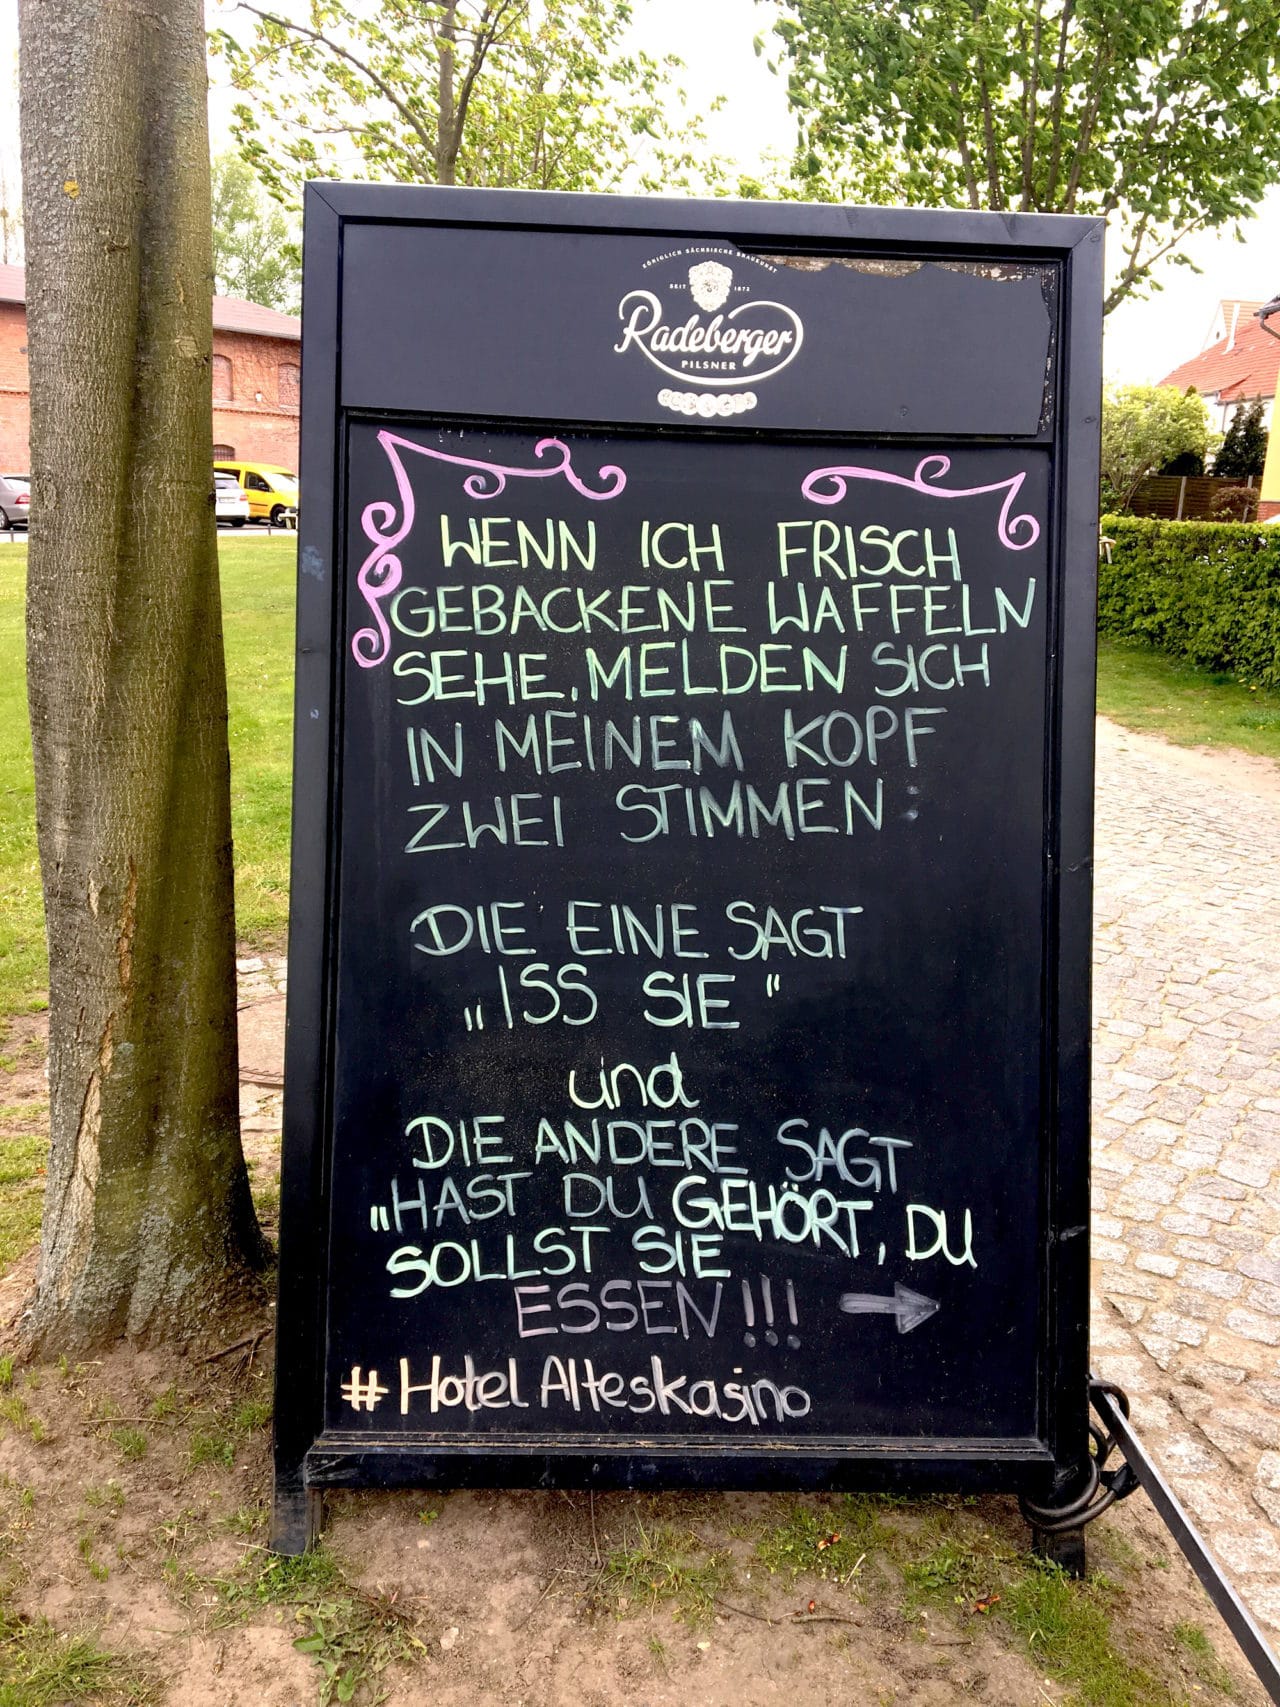 KÖNIGLICH SÄCHSISCHE BRAUKUNST
SEIT 1872
Radeberger
PILSNER
WENN ICH FRISCH
GEBACKENE WAFFELN
SEHE, MELDEN SICH
IN MEINEM KOPF
ZWEI STIMMEN:
DIE EINE SAGT
„ISS SIE“
und
DIE ANDERE SAGT
„HAST DU GEHÖRT, DU
SOLLST SIE
ESSEN!!!
# Hotel Alteskasino